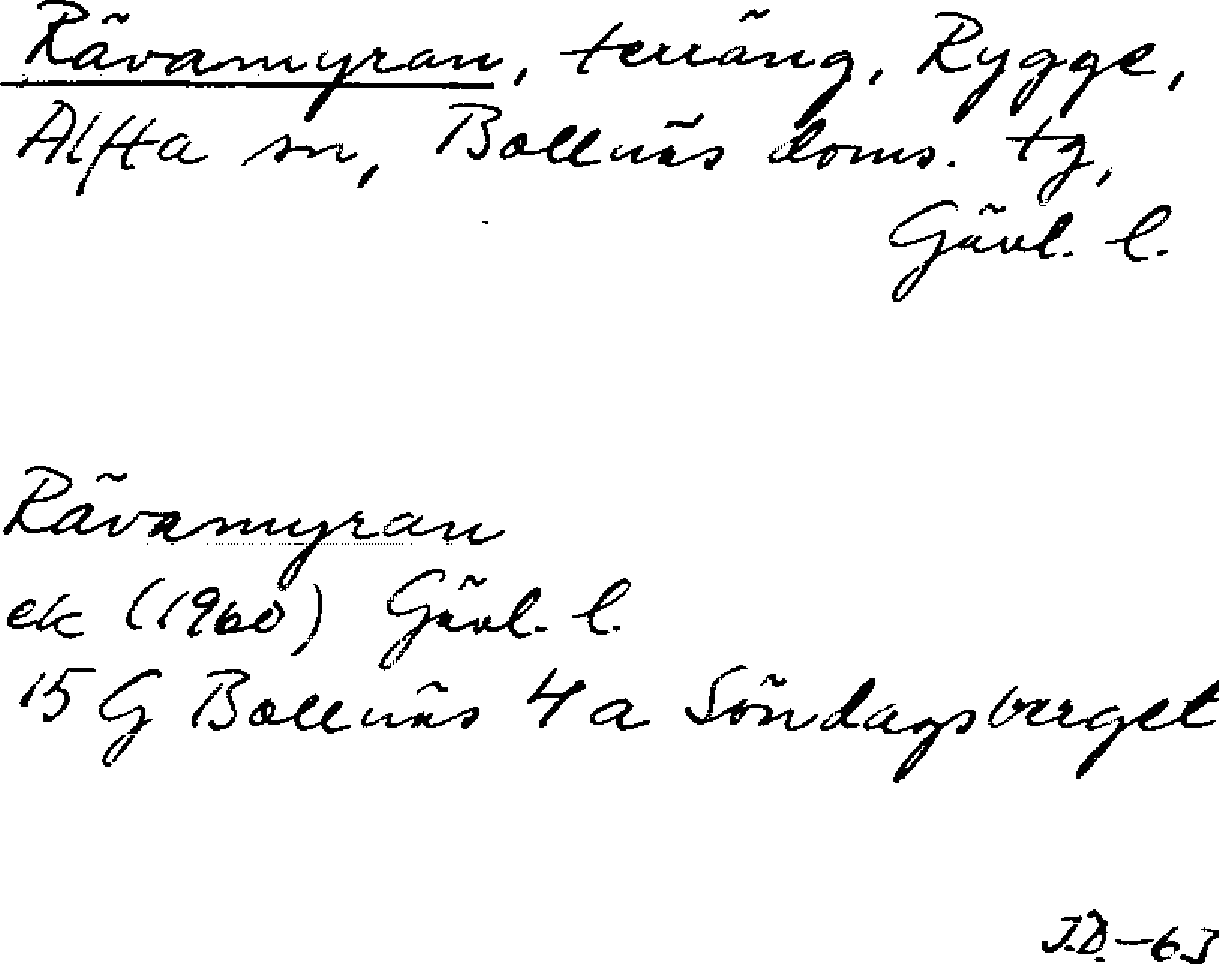 Rävamyran, terräng, Rygge,
Alfta sn, Bollnäs doms. tg,
Gävl. l.
Rävamyran
ek (1960) Gävl. l.
15 G Bollnäs 4 a Söndagsberget
J.D.-63